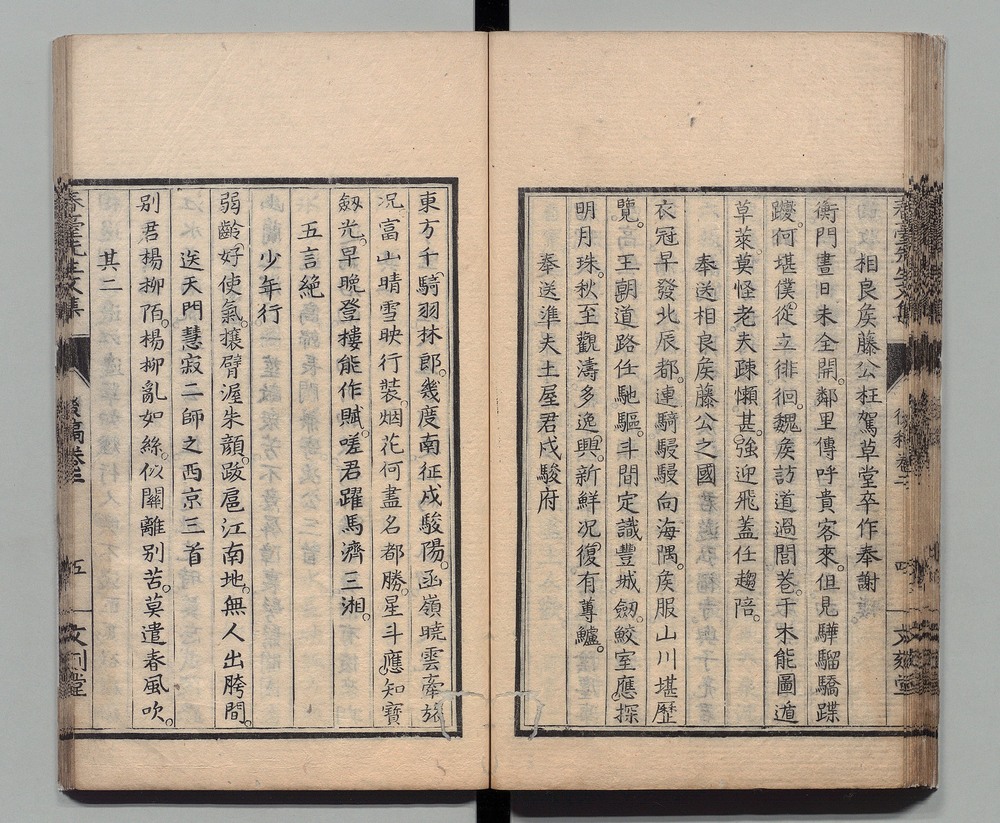 相良矦藤公枉駕草堂卒作奉謝
衡門晝日未全開。鄰里傳呼貴客來。但見驊騮驕蹀
躞。何堪僕從立徘徊。魏矦訪道過閭巷。干木能圖遁
草萊。莫怪老夫疎懶甚。強迎飛蓋任趨陪。
奉送相良矦藤公之國
衣冠早發北辰都。連騎騣騣向海隅。矦服山川堪歷
覽。高王朝道路任馳驅。斗間定識豐城劒。鮫室應探
明月珠。秋至觀濤多逸興。新鮮况復有蓴鱸。
奉送準夫土屋君戍駿府
東方千騎羽林郎。幾度南征戍駿陽。函嶺曉雲牽旅
况。富山晴雪映行裝。烟花何盡名都勝。星斗應知寶
劒光。早晚登樓能作賦。嗟君躍馬濟三湘。
五言絕
少年行
弱齡好使氣。攘臂渥朱顏。跋扈江南地。無人出胯間。
送天門慧寂二師之西京三首
別君楊柳陌。楊柳亂如絲。似關離別苦。莫遣春風吹。
其二
春臺先生文集
後稿卷三
五